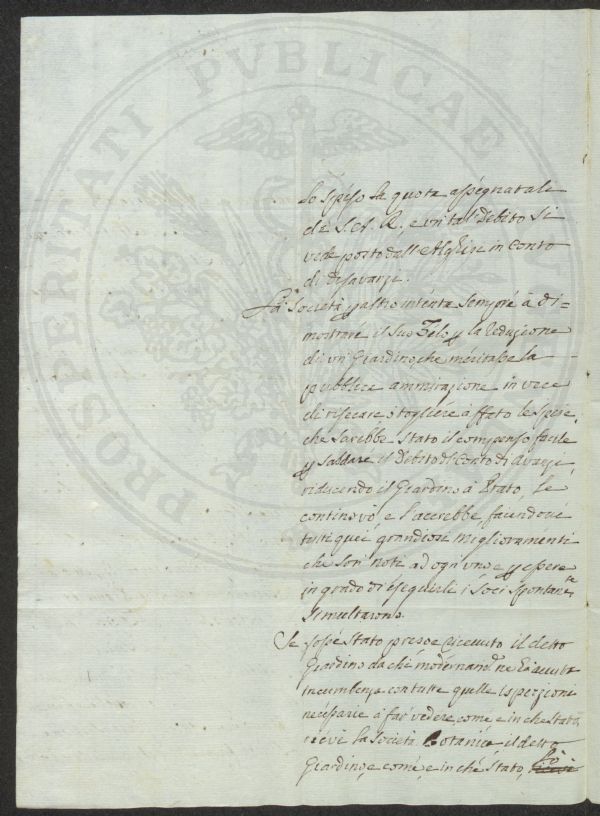 PROSPERITATI PVBLICAE
lo speso la quota assegnatali
da S.A.R., e un tal Debito si
vede posto dall' in Conto
di Disavanzi.
La Società p altro intenta sempre à di=
mostrare il suo Zelo p la Reduzione
di un Giardino, che meritasse la
pubblica ammirazione in vece
di risecare, ò togliere affato le spese,
che sarebbe stato il compenso facile
p saldare il Debito del Conto di Avanzi,
riducendo il Giardino à Prato, le
continovò, e l'acrebbe facendovi
tutti quei grandiosi miglioramenti
che son noti ad ogni uno e p essere
in grado di eseguirli i Soci spontan.te
si multarono.
Se fosse stato preso e ricevuto il detto
Giardino da chi modernam.te ne hà avuta
incumbenza con tutte quelle ispezioni
necessarie à far vedere come e in che stato,
ricevè la Società Botanica il detto
Giardino, e come, e in che stato, lo